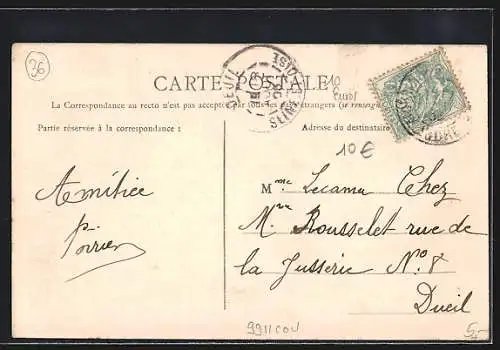 36
CARTE POSTALE
La Correspondance au recto n'est pas acceptée par tous les pays étrangers (se renseigner
Partie réservée à la correspondance :
Adresse du destinataire
10 €
Amitiée
Poirier
Mme Lecamu Chez
Mr Rousselet rue de
la Jusserie No 8
Dueil
9911COU
5